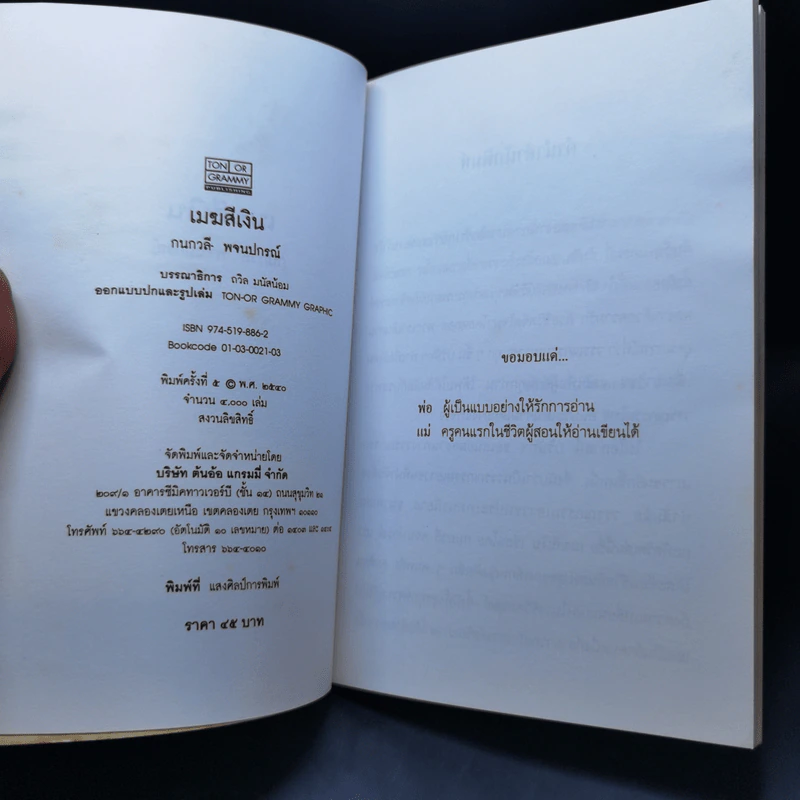 TON OR
GRAMMY
PUBLISHING
เมฆสีเงิน
กนกวลี พจนปกรณ์
บรรณาธิการ ถวิล มนัสน้อม
ออกแบบปกและรูปเล่ม TON-OR GRAMMY GRAPHIC
ISBN 974-519-886-2
Bookcode 01-03-0021-03
พิมพ์ครั้งที่ ๕ © พ.ศ. ๒๕๔๐
จำนวน ๔,๐๐๐ เล่ม
สงวนลิขสิทธิ์
จัดพิมพ์และจัดจำหน่ายโดย
บริษัท ต้นอ้อ แกรมมี่ จำกัด
๒๐๙/๑ อาคารซีมิคทาวเวอร์บี (ชั้น ๑๔) ถนนสุขุมวิท ๒๑
แขวงคลองเตยเหนือ เขตคลองเตย กรุงเทพฯ ๑๐๑๑๐
โทรศัพท์ ๖๖๔-๔๒๙๐ (อัตโนมัติ ๑๐ เลขหมาย) ต่อ ๑๔๐๓ และ
โทรสาร ๖๖๔-๔๐๑๐
พิมพ์ที่ แสงศิลป์การพิมพ์
ราคา ๔๕ บาท
ขอมอบแด่...
พ่อ ผู้เป็นแบบอย่างให้รักการอ่าน
แม่ ครูคนแรกในชีวิตผู้สอนให้อ่านเขียนได้